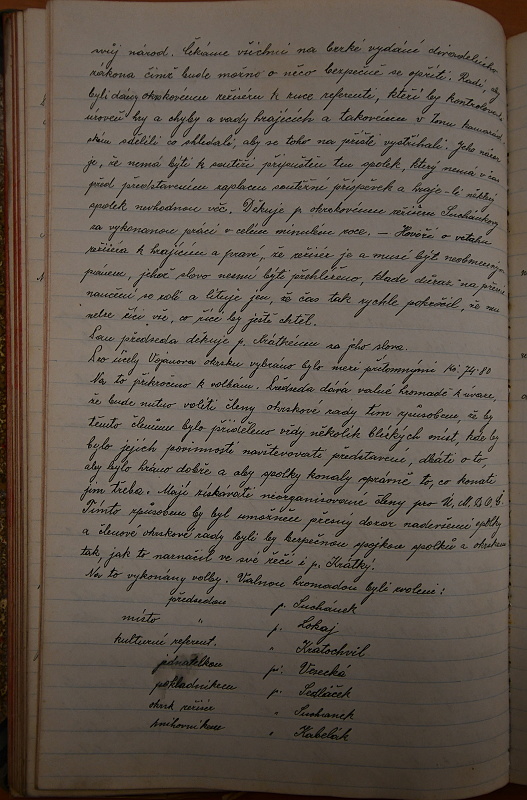 svůj národ. Čekáme všichni na brzké vydání divadelního
zákona čímž bude možno o něco bezpečně se opříti. Radí, aby
byli dáni okrskovému režiséru k ruce referenti, kteří by kontrolovali
úroveň hry a chyby a vady hrajících a takovému v tónu kamarád-
ském sdělili co shledali, aby se toho na příště vystříhali. Jeho názor
je, že nemá býti k soutěži připuštěn ten spolek, který nemá v čas
před představením zaplacen soutěžní příspěvek a hraje-li někký
spolek nevhodnou věc. Děkuje p. okrskovému režiséru Suchánkovi
za vykonanou práci v celém minulém roce. — Hovoří o vztahu
režiséra k hrajícím a praví, že režisér je a musí být neobmezeným
pánem, jehož slovo nesmí býti přehlíženo, klade důraz na přesné
naučení se rolí a lituje jen, že čas tak rychle pokročil, že mu
nelze říci vše, co říci by ještě chtěl.
Pan předseda děkuje p. Krátkému za jeho slova.
Pro účely Vojanova okrsku vybráno bylo mezi přítomnými Kč 74·80
Na to přikročeno k volbám. Předseda dává valné hromadě k úvaze,
že bude nutno voliti členy okrskové rady tím způsobem, že by
těmto členům bylo přiděleno vždy několik blízkých míst, kde by
bylo jejich povinností navštěvovati představení, dbáti o to,
aby bylo hráno dobře a aby spolky konaly správně to, co konati
jim třeba. Mají získávati neorganisované členy pro Ú. M. D. O. Č.
Tímto způsobem by byl umožněn přesný dozor nad všemi spolky
a členové okrskové rady byli by bezpečnou spojkou spolků s okrskem
tak, jak to naznačil ve své řeči i p. Krátký.
Na to vykonány volby. Valnou hromadou byli zvoleni:
předsedou p. Suchánek
místo " p. Lokaj
kulturní referent. " Kratochvil
jednatelkou pí. Veselá
pokladníkem p. Sedláček
okrsk režisér " Suchanek
knihovníkem " Kabelák